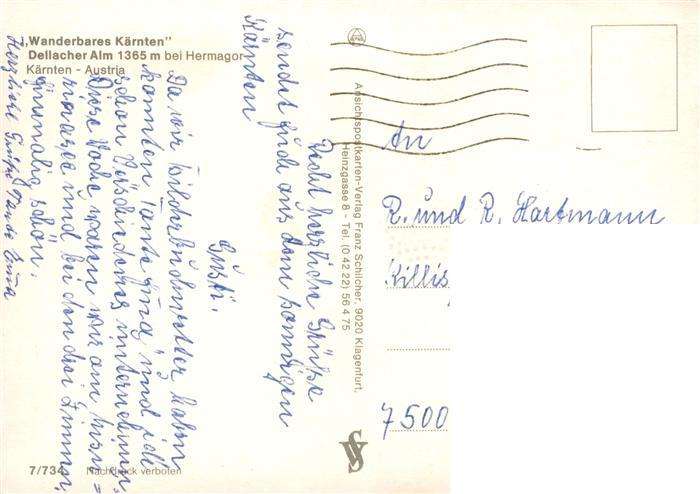 „Wanderbares Kärnten"
Dellacher Alm 1365 m bei Hermagor
Kärnten - Austria
Recht herzliche Grüße
sendet Euch aus dem sonnigen
Kärnten
Gusti.
Da wir Bilderbuchwetter haben
konnten Tante Erna und ich
schon Verschiedenes unternehmen.
Diese Woche waren wir am
und bei den drei Zinnen,
einmalig schön.
Herzliche Grüße Tante Erna
7/734
Nachdruck verboten
Ansichtspostkarten-Verlag Franz Schilcher, 9020 Klagenfurt,
Heinzgasse 8 - Tel. (0 42 22) 56 4 75
An
R. und R. Hartmann
Killis
7500